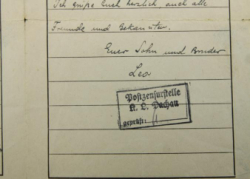 Ich grüße Euch herzlich auch alle
Freunde und Bekannten.
Euer Sohn und Bruder
Leo
Postzensurstelle
K. L. Dachau
geprüft: